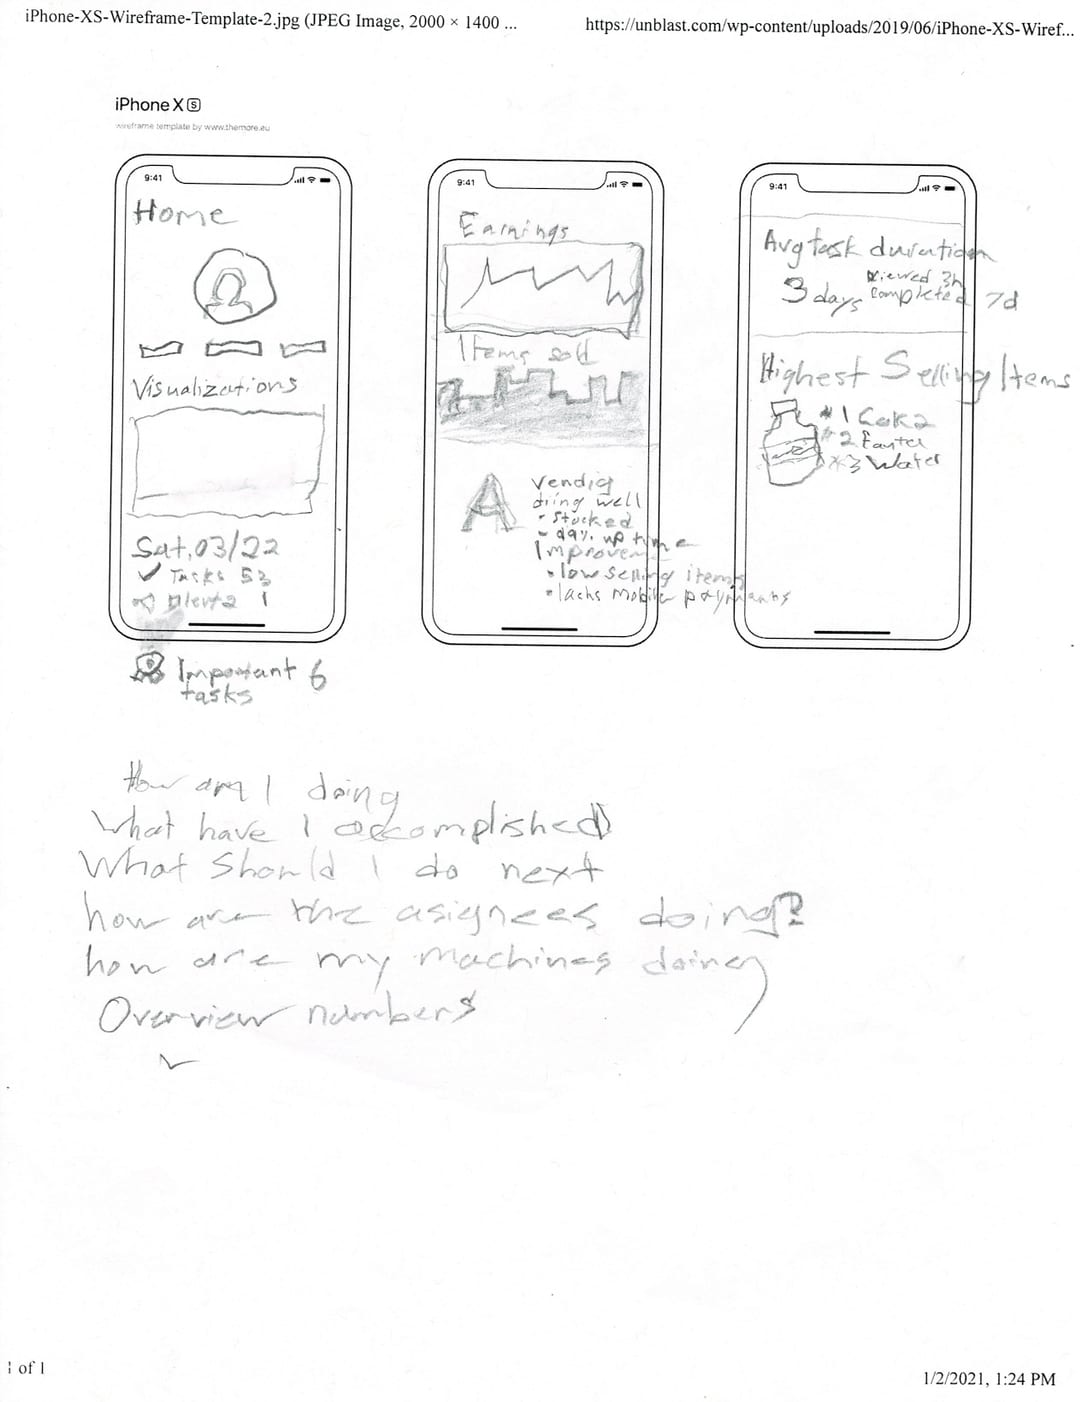 iPhone-XS-Wireframe-Template-2.jpg (JPEG Image, 2000 × 1400 ...
https://unblast.com/wp-content/uploads/2019/06/iPhone-XS-Wiref...
iPhone X S
wireframe template by www.themore.eu
9:41
Home
Visualizations
Sat, 03/22
Tasks 53
1
Important 6
tasks
9:41
Earnings
Items sold
A
doing well
- Stocked
up time
Improvem
• low selling items
• lachs Mobile payments
9:41
Avg task duration
viewed 3h
3 days completed 7d
Highest Selling Items
#1
#2
#3 Water
How am I doing
What have I accomplished
What Should I do next
how are the asignees doing?
how are my machines doing
Overview numbers
1 of 1
1/2/2021, 1:24 PM